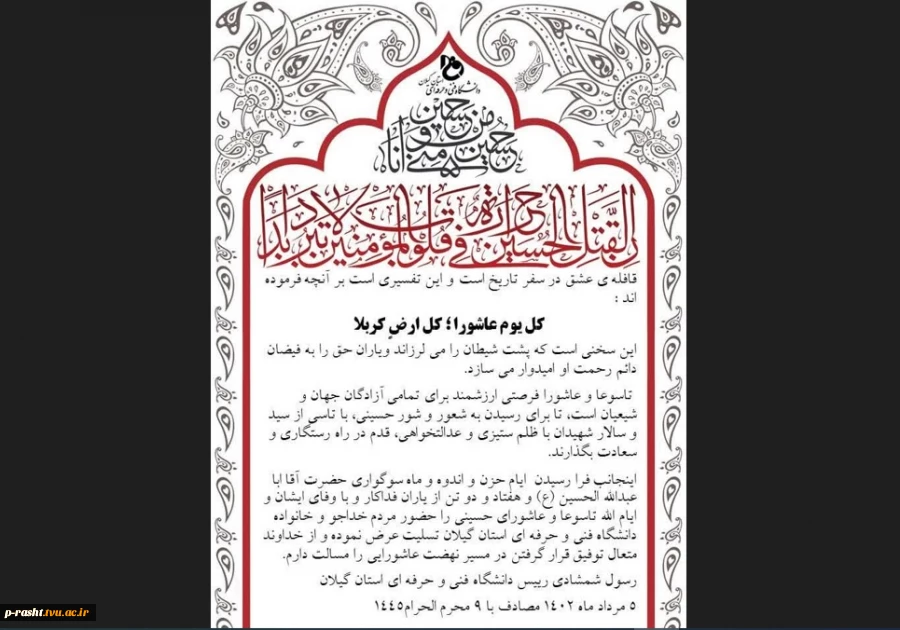 استان گیلان
دانشگاه فنی و حرفه‌ای
حسین منی و أنا من حسین
إن لقتل الحسین حرارة في قلوب المؤمنین لا تبرد أبداً
قافله ی عشق در سفر تاریخ است و این تفسیری است بر آنچه فرموده
اند :
کل یوم عاشورا؛ کل ارضٍ کربلا
این سخنی است که پشت شیطان را می لرزاند ویاران حق را به فیضان
دائم رحمت او امیدوار می سازد.
تاسوعا و عاشورا فرصتی ارزشمند برای تمامی آزادگان جهان و
شیعیان است، تا برای رسیدن به شعور و شور حسینی، با تاسی از سید
و سالار شهیدان با ظلم ستیزی و عدالتخواهی، قدم در راه رستگاری و
سعادت بگذارند.
اینجانب فرا رسیدن ایام حزن و اندوه و ماه سوگواری حضرت آقا ابا
عبدالله الحسین (ع) و هفتاد و دو تن از یاران فداکار و با وفای ایشان و
ایام الله تاسوعا و عاشورای حسینی را حضور مردم خداجو و خانواده
دانشگاه فنی و حرفه ای استان گیلان تسلیت عرض نموده و از خداوند
متعال توفیق قرار گرفتن در مسیر نهضت عاشورایی را مسالت دارم.
رسول شمشادی رییس دانشگاه فنی و حرفه ای استان گیلان
۵ مرداد ماه ۱۴۰۲ مصادف با ۹ محرم الحرام۱۴۴۵
p-rasht.tvu.ac.ir